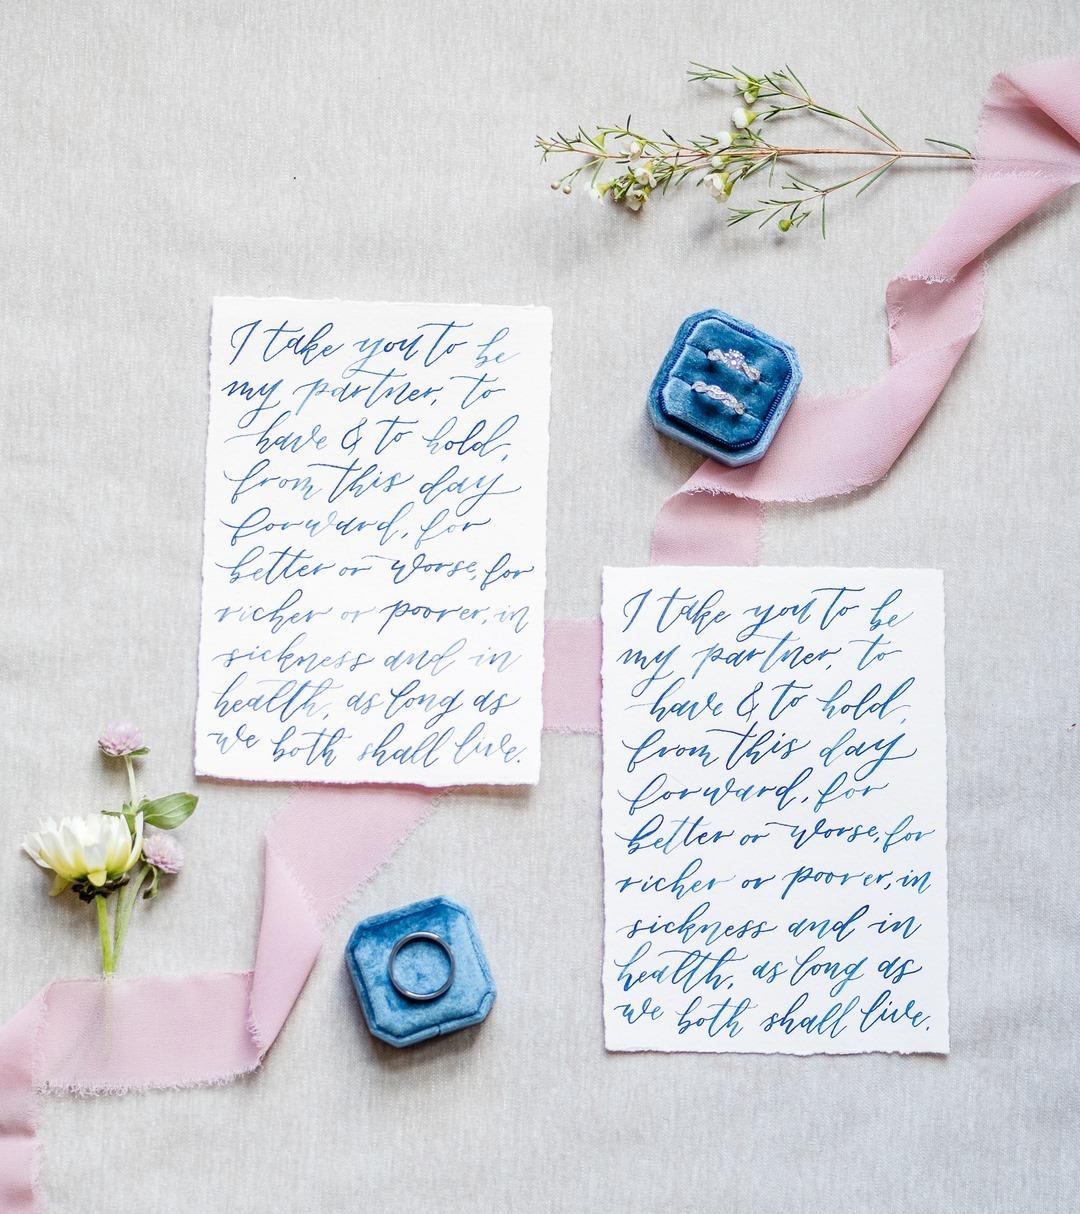 I take you to be
my partner, to
have & to hold,
from this day
forward, for
better or worse, for
richer or poorer, in
sickness and in
health, as long as
we both shall live.
I take you to be
my partner, to
have & to hold,
from this day
forward, for
better or worse, for
richer or poorer, in
sickness and in
health, as long as
we both shall live.